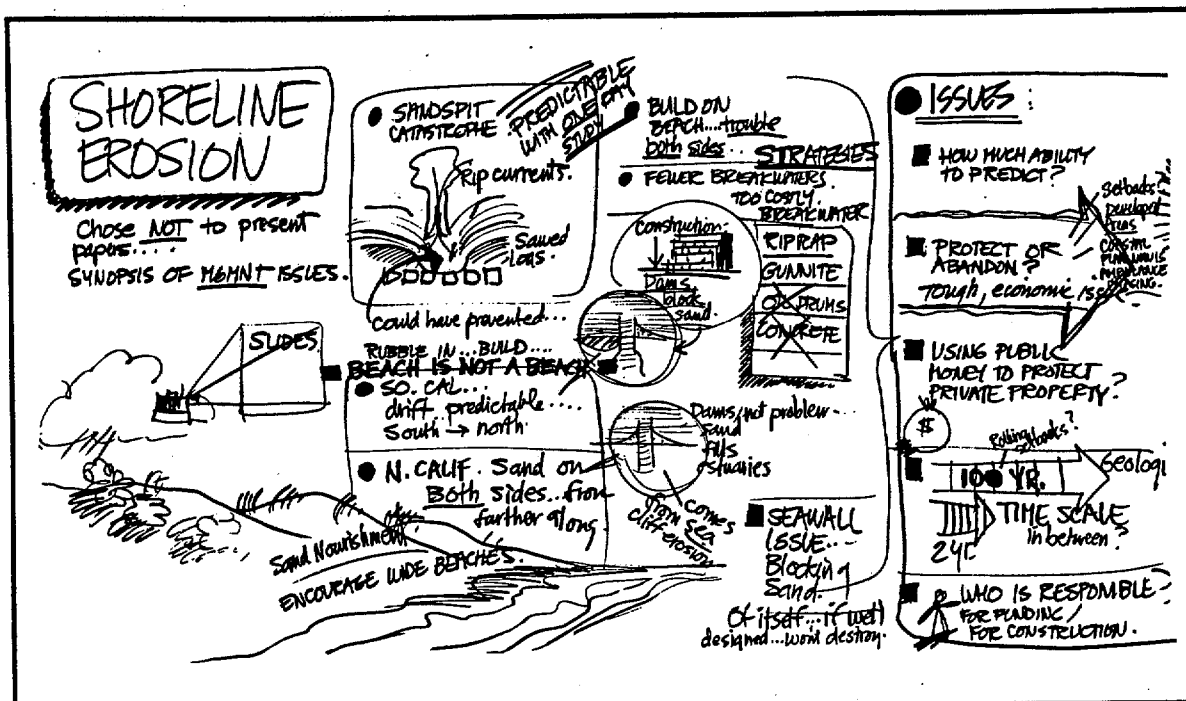 SHORELINE
EROSION
Chose NOT to present
papers....
SYNOPSIS OF MGMNT ISSUES.
SLIDES
Sand Nourishment
ENCOURAGE WIDE BEACHES.
SANDSPIT
CATASTROPHE
PREDICTABLE
WITH ONE DAY
STUDY
Rip currents.
Sawed
Logs.
Could have prevented...
RUBBLE IN...BUILD....
BEACH IS NOT A BEACH
SO. CAL...
drift predictable....
South → north.
N. CALIF. Sand on
Both sides...from
farther along.
BUILD ON
BEACH....trouble
both sides...
STRATEGIES
FEWER BREAKWATERS.
TOO COSTLY.
BREAKWATER
Construction.
Dams
block
sand.
RIPRAP
GUNNITE
OIL DRUMS
CONCRETE
Dams, not problem...
sand
fills
estuaries
Comes
from sea
cliff erosion
SEAWALL
ISSUE....
Blocking
Sand.
Of itself...if well
designed...wont destroy.
ISSUES:
HOW MUCH ABILITY
TO PREDICT?
Setbacks?
PROTECT OR
ABANDON?
Tough, economic
USING PUBLIC
MONEY TO PROTECT
PRIVATE PROPERTY?
$
Rolling setbacks?
100 YR.
Geologi
TIME SCALE
in between?
2yr.
WHO IS RESPONSIBLE?
FOR FUNDING/
FOR CONSTRUCTION.